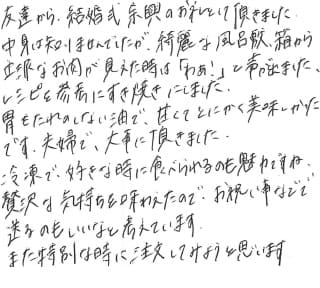 友達から、結婚式余興のお礼として頂きました。
中身は知りませんでしたが、綺麗な風呂敷、箱から
立派なお肉が見えた時は「わぁ！」と声が出ました。
レシピを参考にすき焼きにしました。
胃もたれのしない油で、甘くてとにかく美味しかった
です。夫婦で、大事に頂きました。
冷凍で、好きな時に食べられるのも魅力ですね。
贅沢な気持ちを味わえたので、お祝い事などで
送るのもいいなと考えています。
また特別な時に注文してみようと思います